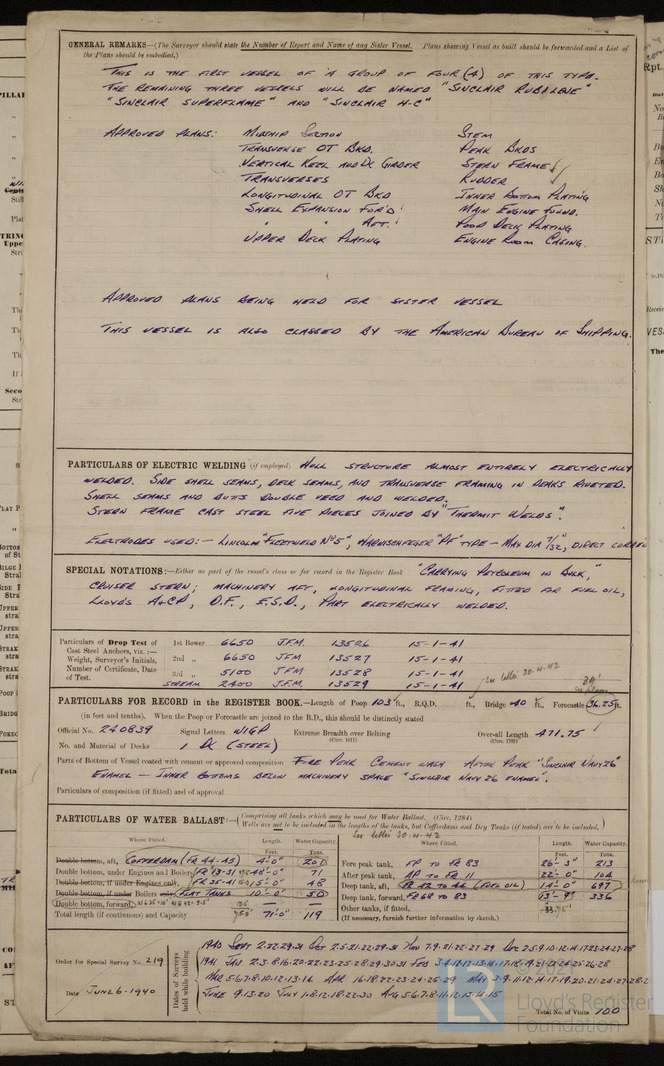 GENERAL REMARKS—(The Surveyor should state the Number of Report and Name of any Sister Vessel. Plans showing Vessel as built should be forwarded and a List of
the Plans should be embodied.)
THIS IS THE FIRST VESSEL OF A GROUP OF FOUR (4) OF THIS TYPE.
THE REMAINING THREE VESSELS WILL BE NAMED "SINCLAIR RUBILENE"
"SINCLAIR SUPERFLAME" AND "SINCLAIR H-C"
APPROVED PLANS: MIDSHIP SECTION STEM
TRANSVERSE OT BKD. PEAK BKDS
VERTICAL KEEL AND DK GIRDER STERN FRAME
TRANSVERSES RUDDER
LONGITUDINAL OT BKD INNER BOTTOM PLATING
SHELL EXPANSION FOR'D MAIN ENGINE FOUND.
" " AFT. POOP DECK PLATING
UPPER DECK PLATING ENGINE ROOM CASING.
APPROVED PLANS BEING HELD FOR SISTER VESSEL
THIS VESSEL IS ALSO CLASSED BY THE AMERICAN BUREAU OF SHIPPING.
PARTICULARS OF ELECTRIC WELDING (if employed) HULL STRUCTURE ALMOST ENTIRELY ELECTRICALLY
WELDED. SIDE SHELL SEAMS, DECK SEAMS, AND TRANSVERSE FRAMING IN PEAKS RIVETED.
SHELL SEAMS AND BUTTS DOUBLE VEED AND WELDED.
STERN FRAME CAST STEEL FIVE PIECES JOINED BY "THERMIT WELDS".
ELECTRODES USED:- LINCOLN "FLEETWELD No 5", HARNISCHFEGER "PF" TYPE - MAX DIA 7/32, DIRECT CURREN
SPECIAL NOTATIONS:—Either as part of the vessel's class or for record in the Register Book "CARRYING PETROLEUM IN BULK,"
CRUISER STERN; MACHINERY AFT, LONGITUDINAL FRAMING, FITTED FOR FUEL OIL,
LLOYDS A&CP, D.F., E.S.D., PART ELECTRICALLY WELDED.
Particulars of Drop Test of 1st Bower 6650 J.F.M. 13526 15-1-41
Cast Steel Anchors, viz.:—
Weight, Surveyor's Initials, 2nd „ 6650 J.F.M 13527 15-1-41
Number of Certificate, Date 3rd „ 5100 J.F.M 13528 15-1-41 See letter 30.4.42
of Test. STREAM 2400 J.F.M. 13529 15-1-41 39'
PARTICULARS FOR RECORD in the REGISTER BOOK.—Length of Poop 103 ft., R.Q.D. ft., Bridge 40 ft., Forecastle 36.25 ft.
(in feet and tenths). When the Poop or Forecastle are joined to the B.D., this should be distinctly stated
Official No. 240839 Signal Letters WIGP Extreme Breadth over Belting Over-all Length 471.75
No. and Material of Decks 1 DK (STEEL)
Parts of Bottom of Vessel coated with cement or approved composition FORE PEAK CEMENT WASH AFTER PEAK "SINCLAIR NAVY 26"
ENAMEL - INNER BOTTOMS BELOW MACHINERY SPACE "SINCLAIR NAVY 26 ENAMEL".
Particulars of composition (if fitted) and of approval
PARTICULARS OF WATER BALLAST:—(Comprising all tanks which may be used for Water Ballast. (Circ. 1284)
Wells are not to be included in the lengths of the tanks, but Cofferdams and Dry Tanks (if tested) are to be included.)
See letter 30.4.42
Where Fitted. Length. Water Capacity. Where Fitted. Length. Water Capacity.
Feet. Tons. Feet. Tons.
Double bottom, aft, COFFERDAM (FR 44-45) 4'-0" 201 Fore peak tank, FP TO FR 83 26'-3" 213
Double bottom, under Engines and Boilers FR 13-31 48'-0" 71 After peak tank, AP TO FR 11 22'-0" 104
Double bottom, if under Engines only, FR 35-41 15'-0" 48 Deep tank, aft, FR 42 TO 44 (FUEL OIL) 14'-0" 697
Double bottom, if under Boilers only, FLAT TANKS 10'-0" 50 Deep tank, forward, FR 68 TO 83 13'-9" 336
Double bottom, forward, — — Other tanks, if fitted,
Total length (if continuous) and Capacity 71'-0" 119 (If necessary, furnish further information by sketch.)
Order for Special Survey No. 219
Date JUNE 6-1940
Dates of Surveys held while building
1940 SEPT 2-22-29-31 OCT 2-5-21-22-29-31 NOV 7-9-21-22-27-29 DEC 2-5-9-10-12-14-17-23-24-27-28
1941 JAN 2-3-8-16-20-22-23-25-28-29-30-31 FEB 3-4-12-13-14-17-18-19-21-24-25-26-28
MAR 5-6-7-8-10-12-13-16 APR 16-18-22-23-24-25-29 MAY 3-9-11-12-14-17-19-20-21-24-27-28-2
JUNE 9-13-20 JULY 1-8-12-18-22-30 AUG 5-6-7-8-11-12-13-14-15
Total No. of Visits 100
© 2021
Lloyd's Register
Foundation